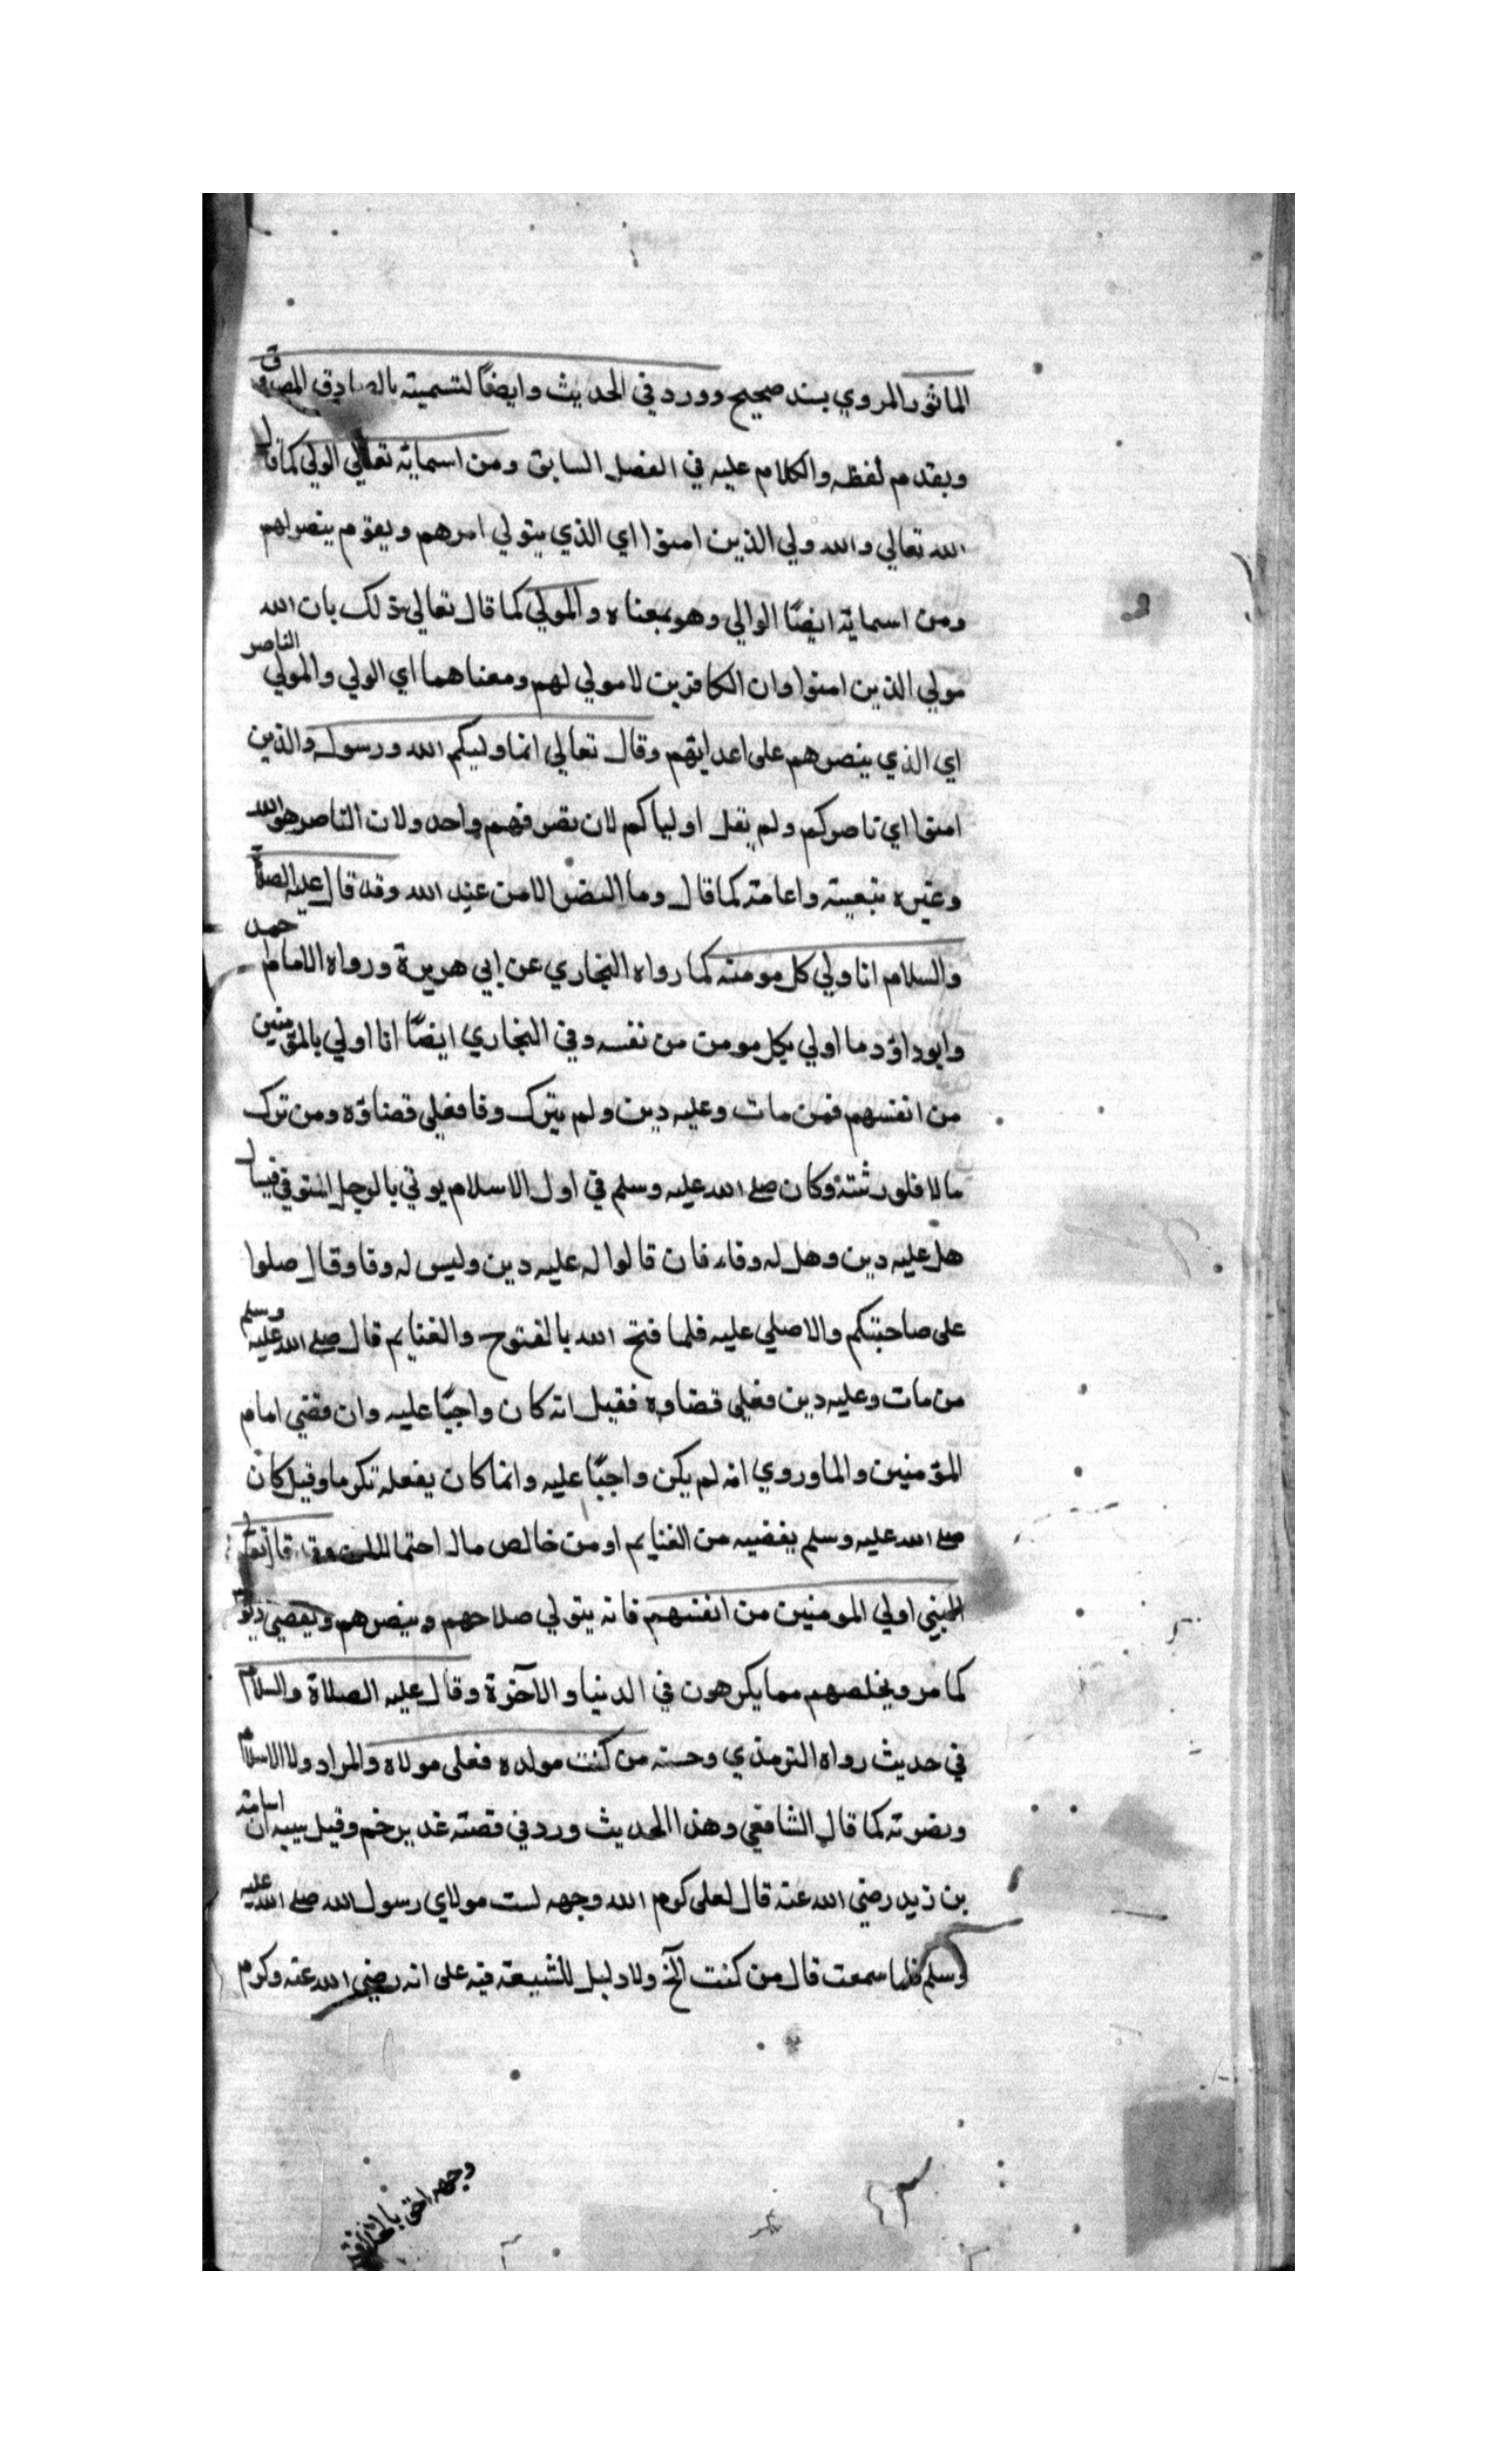 الماثور المروي بسند صحيح وورد في الحديث وايضًا لتسميته بالصادق المصدوق
وبقدم لفظه والكلام عليه في الفصل السابق ومن اسمايه تعالي الولي كما قال
الله تعالي والله ولي الذين امنوا اي الذي يتولي امرهم ويقوم بنصرلهم
ومن اسمايه ايضًا الوالي وهو بمعناه والمولي كما قال تعالي ذلك بان الله
مولي الذين امنوا وان الكافرين لا مولي لهم ومعناهما اي الولي والمولي الناصر
اي الذي ينصرهم على اعدايهم وقال تعالي انما وليكم الله ورسوله والذين
امنوا اي ناصركم ولم يقل اولياكم لان تصرفهم واحد ولان الناصر هو الله
وغيره بتبعيته واعامته كما قال وما النصر الا من عند الله وقد قال عليه الصلاة
والسلام انا ولي كل مومنه كما رواه البخاري عن ابي هريرة ورواه الامام احمد
وابو داؤد ما اولي بكل مومن من نفسه وفي البخاري ايضًا انا اولي بالمؤمنين
من انفسهم فمن مات وعليه دين ولم يترك وفا فعلي قضاؤه ومن ترك
مالا فلورثته وكان صلى الله عليه وسلم في اول الاسلام يوتي بالرجل المتوفي فيسال
هل عليه دين وهل له وفاء فان قالوا له عليه دين وليس له وفا وقال صلوا
على صاحبتكم والا صلي عليه فلما فتح الله بالفتوح والغنايم قال صلى الله عليه وسلم
من مات وعليه دين فعلي قضاوه فقيل انه كان واجبًا عليه وان قضي امام
المؤمنين والماوروي انه لم يكن واجبًا عليه وانما كان يفعله تكرما وقيل كان
صلى الله عليه وسلم يقضيه من الغنايم او من خالص ماله احتمالان وقد قال تعالي
النبي اولي المومنين من انفسهم فانه يتولي صلاحهم وينصرهم ويقضي ديونهم
كما مر ويخلصهم مما يكرهون في الدنيا والآخرة وقال عليه الصلاة والسلام
في حديث رواه الترمذي وحسنه من كنت مولده فعلى مولاه والمراد ولا الاسلام
ونصرته كما قال الشافعي وهذا الحديث ورد في قصته غدير خم وقيل سببه ان اسامة
بن زيد رضي الله عنه قال لعلى كرم الله وجهه لست مولاي رسول الله صلى الله عليه
وسلم فلما سمعت قال من كنت آلخ ولا دليل للشيعة فيه على انه رضي الله عنه وكرم
وجهه احق بالخلافة